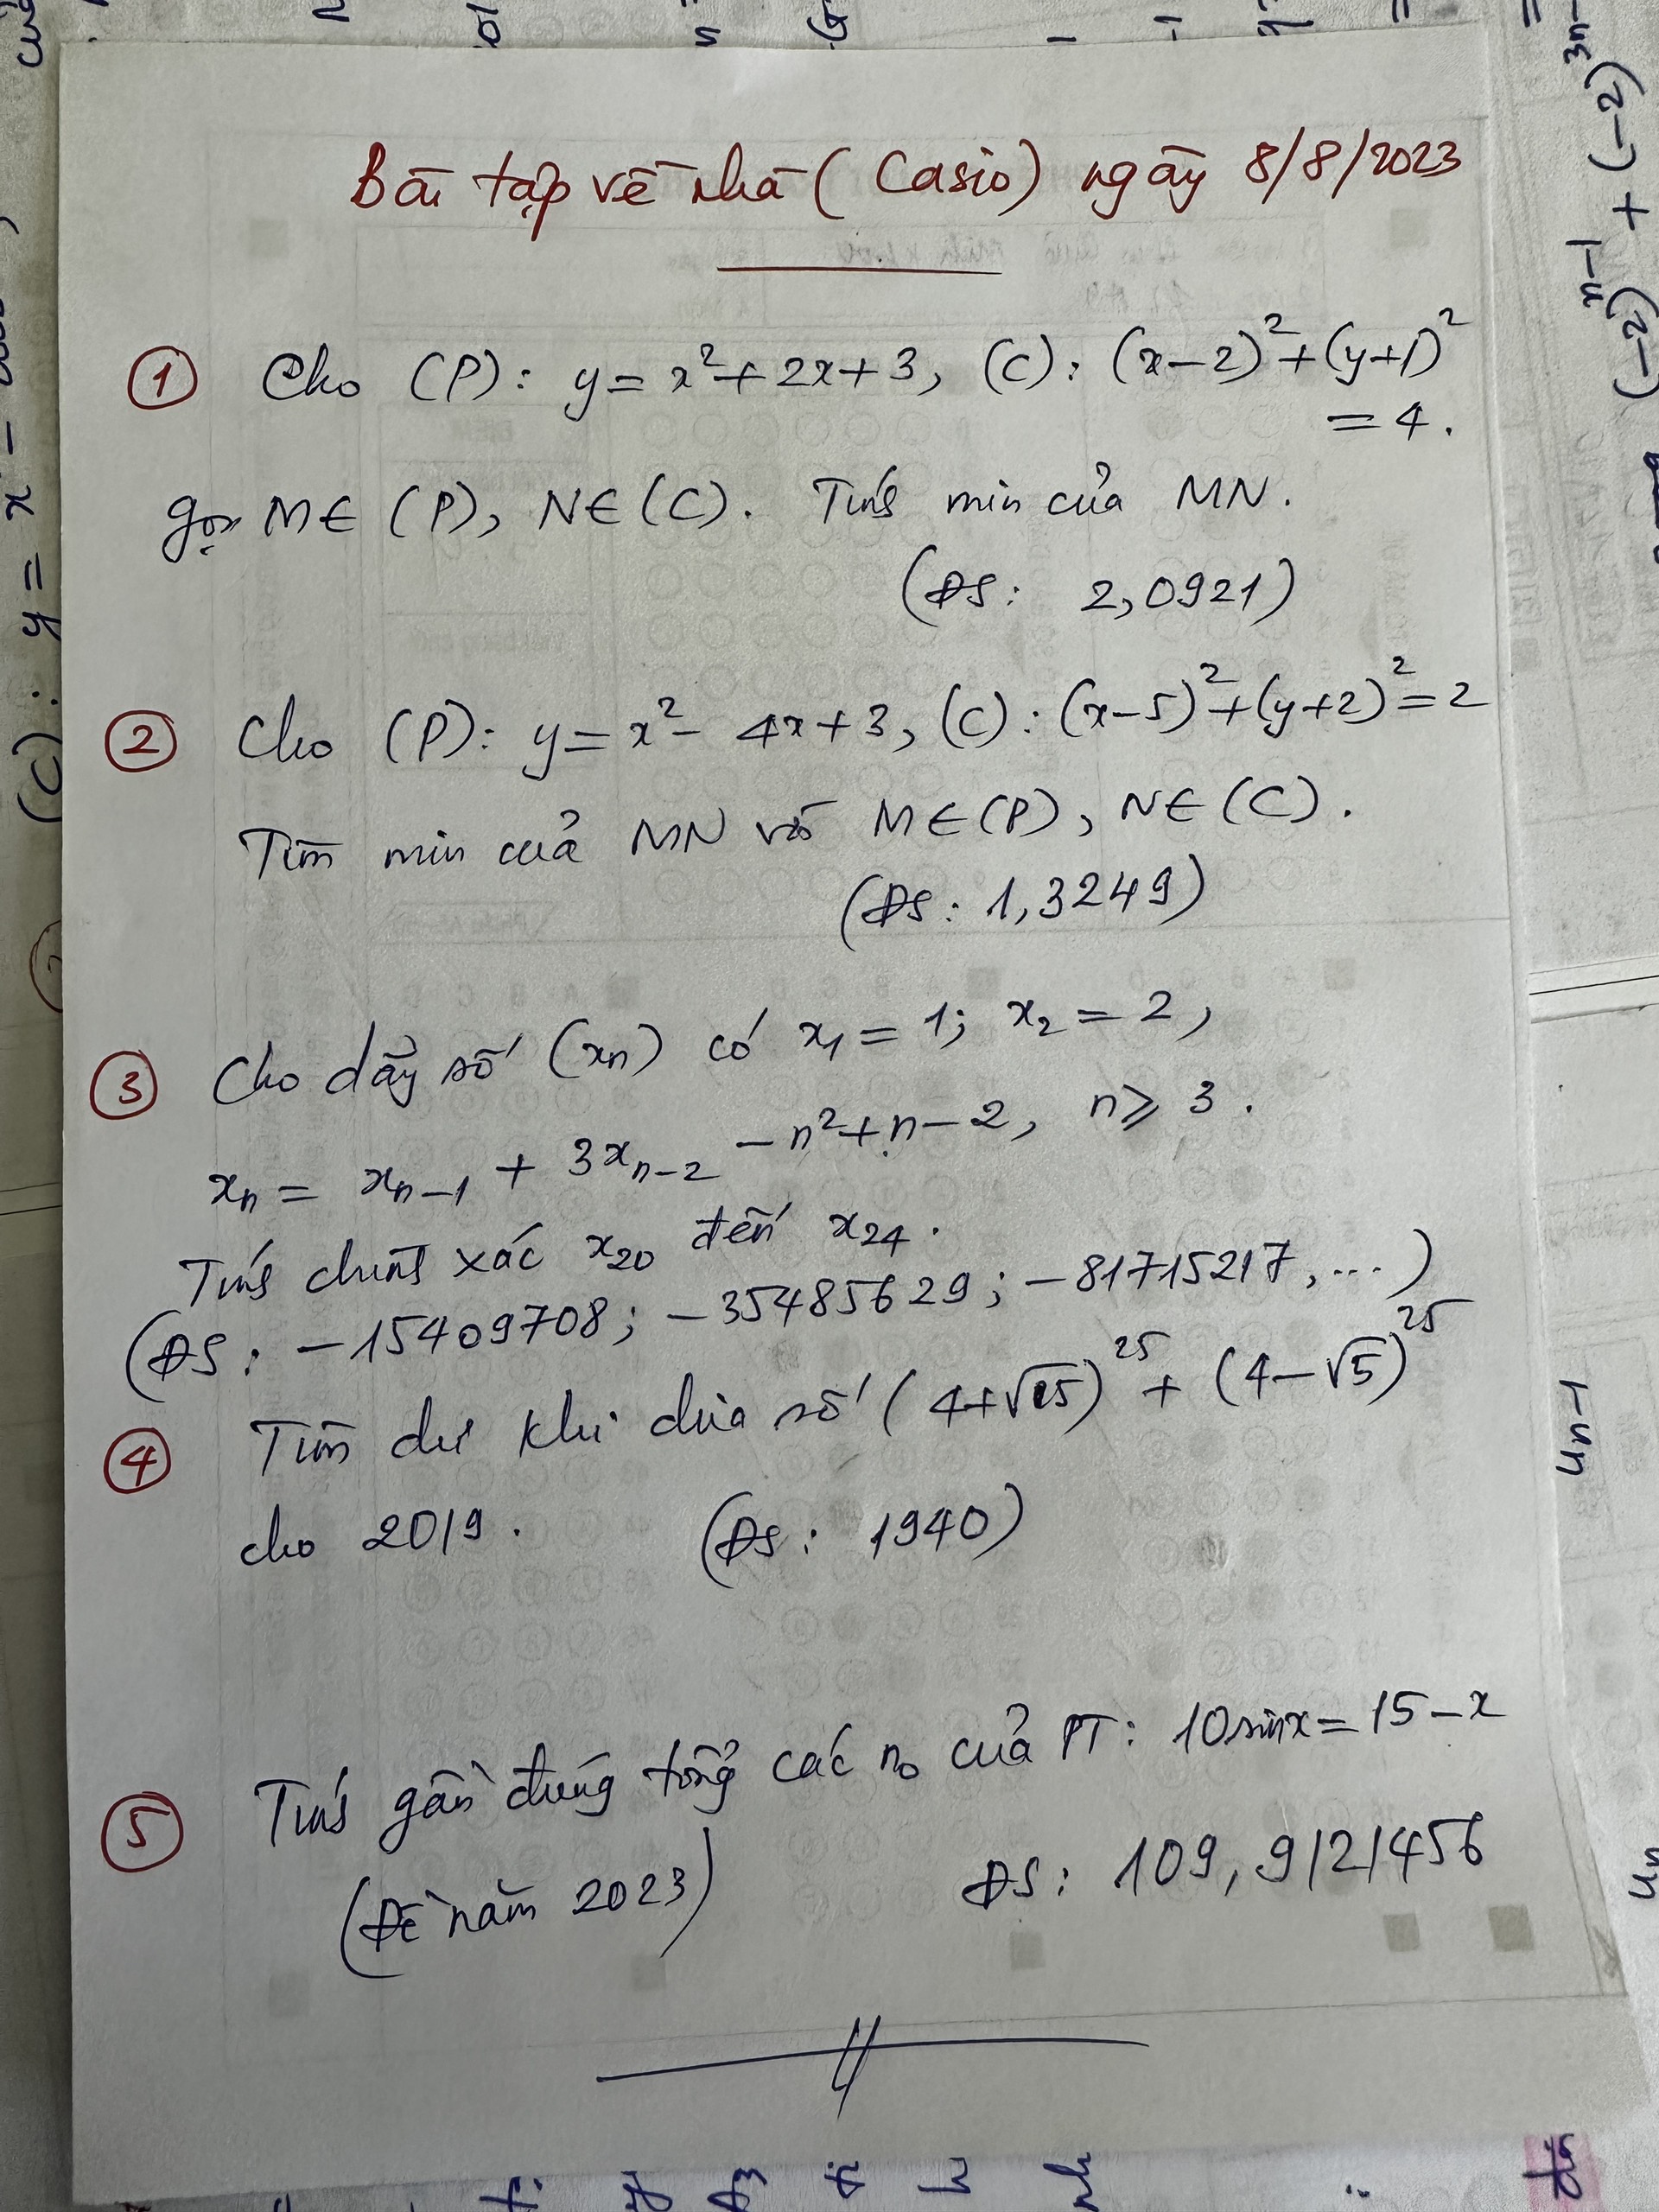 Bài tập về nhà (Casio) ngày 8/8/2023
① Cho (P): y = x² + 2x + 3, (C): (x-2)² + (y+1)²
= 4.
gọi M ∈ (P), N ∈ (C). Tính min của MN.
(ĐS: 2,0921)
② Cho (P): y = x² - 4x + 3, (C): (x-5)² + (y+2)² = 2
Tìm min của MN với M ∈ (P), N ∈ (C).
(ĐS: 1,3249)
③ Cho dãy số (xₙ) có x₁ = 1; x₂ = 2,
xₙ = xₙ₋₁ + 3xₙ₋₂ - n² + n - 2, n ⩾ 3.
Tính chính xác x₂₀ đến x₂₄.
(ĐS: -15409708; -35485629; -81715217, ...)
④ Tìm dư khi chia số (4+√5)²⁵ + (4-√5)²⁵
cho 2019. (ĐS: 1940)
⑤ Tính gần đúng tổng các n₀ của PT: 10sinx = 15 - x
(Đề năm 2023) ĐS: 109,9121456
(C): y = x
uₙ₋₁
(-2)ⁿ⁻¹ + (-2)³ⁿ⁻